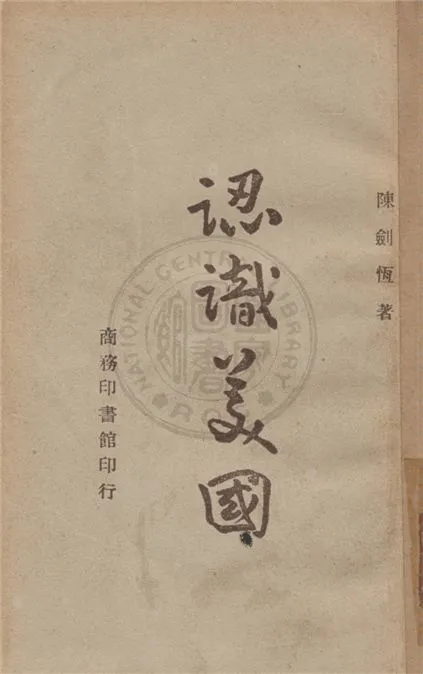 陳劍恆著
認識美國
商務印書館印行
NATIONAL CENTRAL LIBRARY
R.O.C.